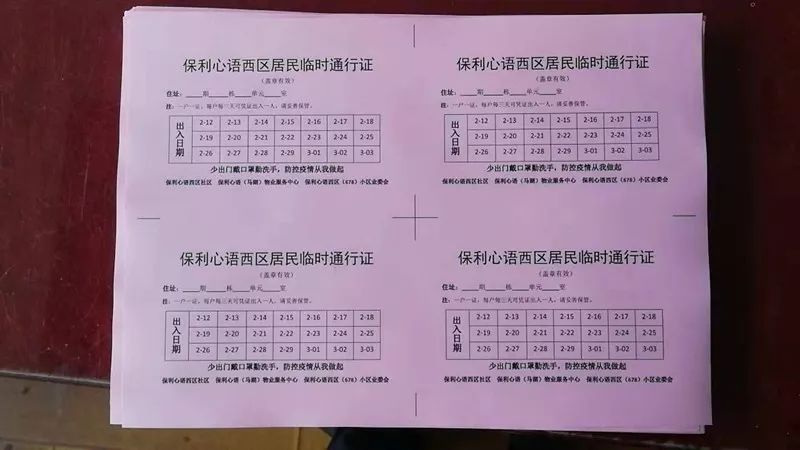 保利心语西区居民临时通行证
(盖章有效)
住址:____期____栋____单元____室
注:一户一证,每户每三天可凭证出入一人,请妥善保管。
出入日期
2-12 2-13 2-14 2-15 2-16 2-17 2-18
2-19 2-20 2-21 2-22 2-23 2-24 2-25
2-26 2-27 2-28 2-29 3-01 3-02 3-03
少出门戴口罩勤洗手,防控疫情从我做起
保利心语西区社区 保利心语(马湖)物业服务中心 保利心语西区(678)小区业委会
保利心语西区居民临时通行证
(盖章有效)
住址:____期____栋____单元____室
注:一户一证,每户每三天可凭证出入一人,请妥善保管。
出入日期
2-12 2-13 2-14 2-15 2-16 2-17 2-18
2-19 2-20 2-21 2-22 2-23 2-24 2-25
2-26 2-27 2-28 2-29 3-01 3-02 3-03
少出门戴口罩勤洗手,防控疫情从我做起
保利心语西区社区 保利心语(马湖)物业服务中心 保利心语西区(678)小区业委会
保利心语西区居民临时通行证
(盖章有效)
住址:____期____栋____单元____室
注:一户一证,每户每三天可凭证出入一人,请妥善保管。
出入日期
2-12 2-13 2-14 2-15 2-16 2-17 2-18
2-19 2-20 2-21 2-22 2-23 2-24 2-25
2-26 2-27 2-28 2-29 3-01 3-02 3-03
少出门戴口罩勤洗手,防控疫情从我做起
保利心语西区社区 保利心语(马湖)物业服务中心 保利心语西区(678)小区业委会
保利心语西区居民临时通行证
(盖章有效)
住址:____期____栋____单元____室
注:一户一证,每户每三天可凭证出入一人,请妥善保管。
出入日期
2-12 2-13 2-14 2-15 2-16 2-17 2-18
2-19 2-20 2-21 2-22 2-23 2-24 2-25
2-26 2-27 2-28 2-29 3-01 3-02 3-03
少出门戴口罩勤洗手,防控疫情从我做起
保利心语西区社区 保利心语(马湖)物业服务中心 保利心语西区(678)小区业委会